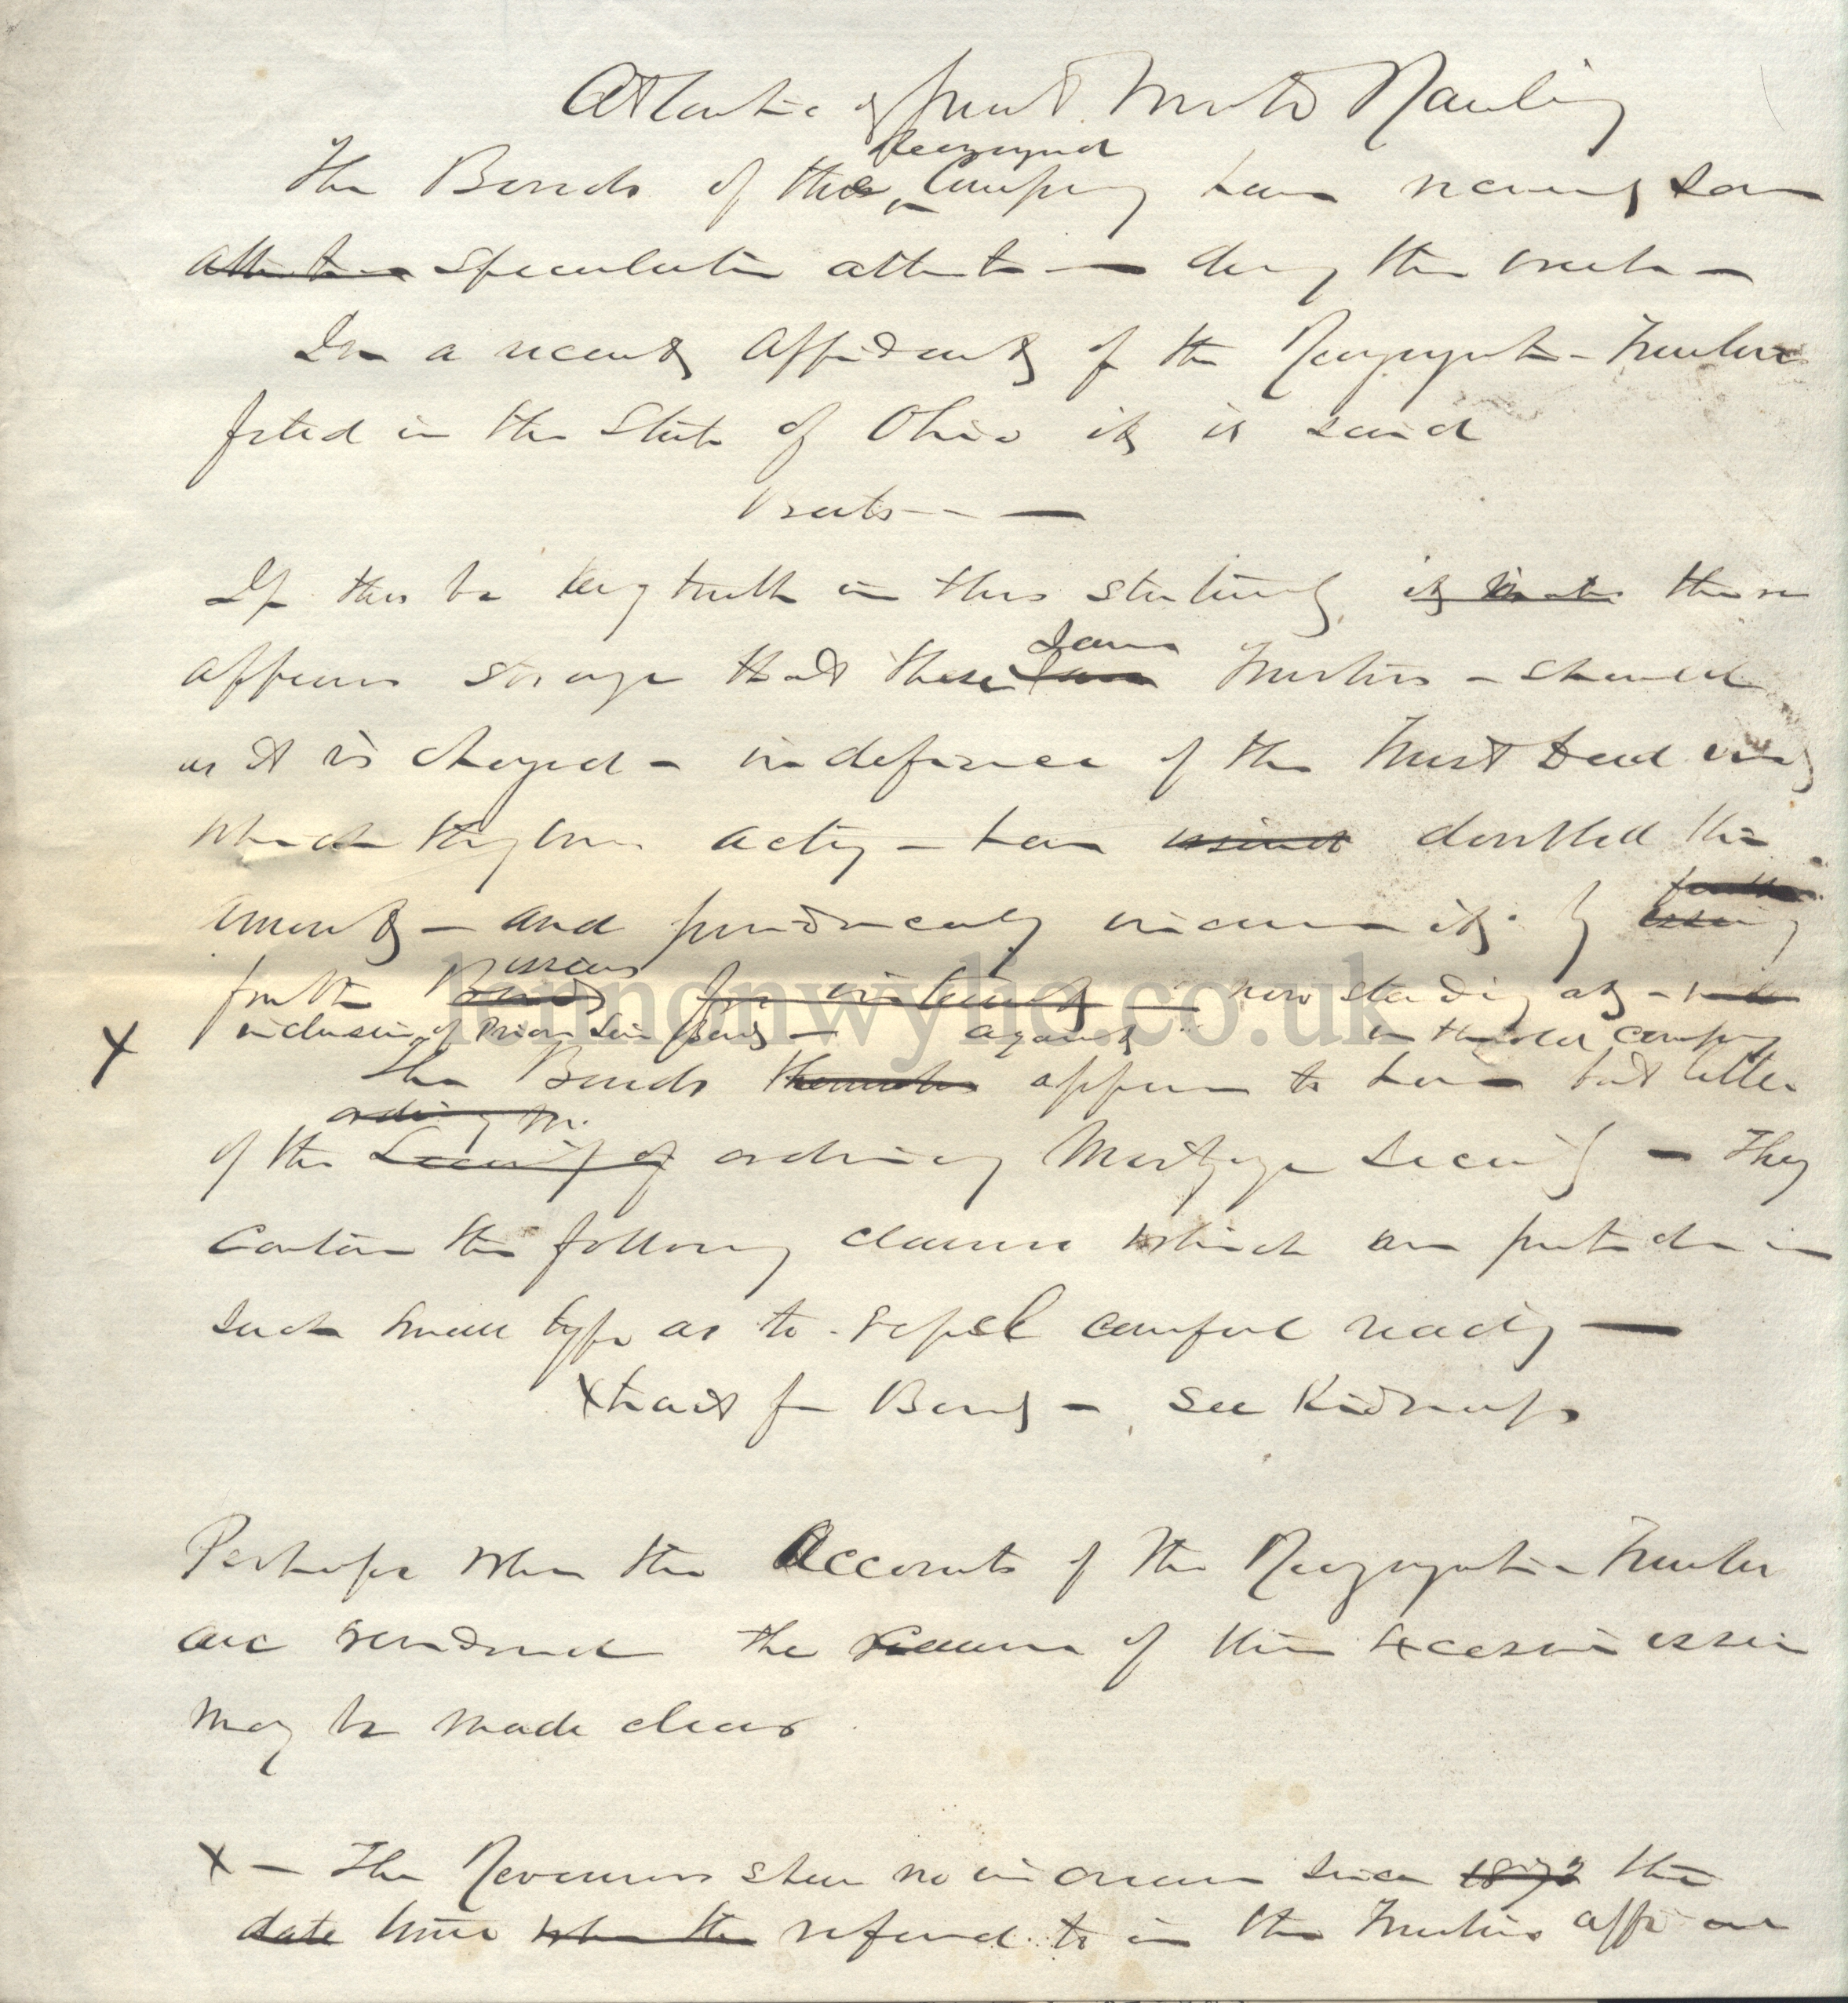 Atlantic & Great Western Railway
Reorganised
The Bonds of this Company have recently
attention speculative attention during the week —
In a recent Affidavit of the Reorganization Trustees
filed in the State of Ohio it is said
If there be any truth in this statement, it there
appears strange that these same Trustees — should
Same
as it is charged — in defiance of the Trust Deed
which they were acting — have doubled the
amount — and
further Bonds now standing at —
issues
inclusive of Prior Lien Bonds — against in the old company
X
The Bonds themselves appear to have but little
ordinary M.
of the Security of ordinary Mortgage Security — They
contain the following clauses which are printed in
such small type as to repel careful reading —
Xtract from Bond — see Kidnaps
Perhaps when the Accounts of the Reorganization Trustees
are rendered the reason of this excessive issue
may be made clear
X — The Revenues shew no increase since 1872 the
date time when the referred to in the Trustees
lennonwylie.co.uk